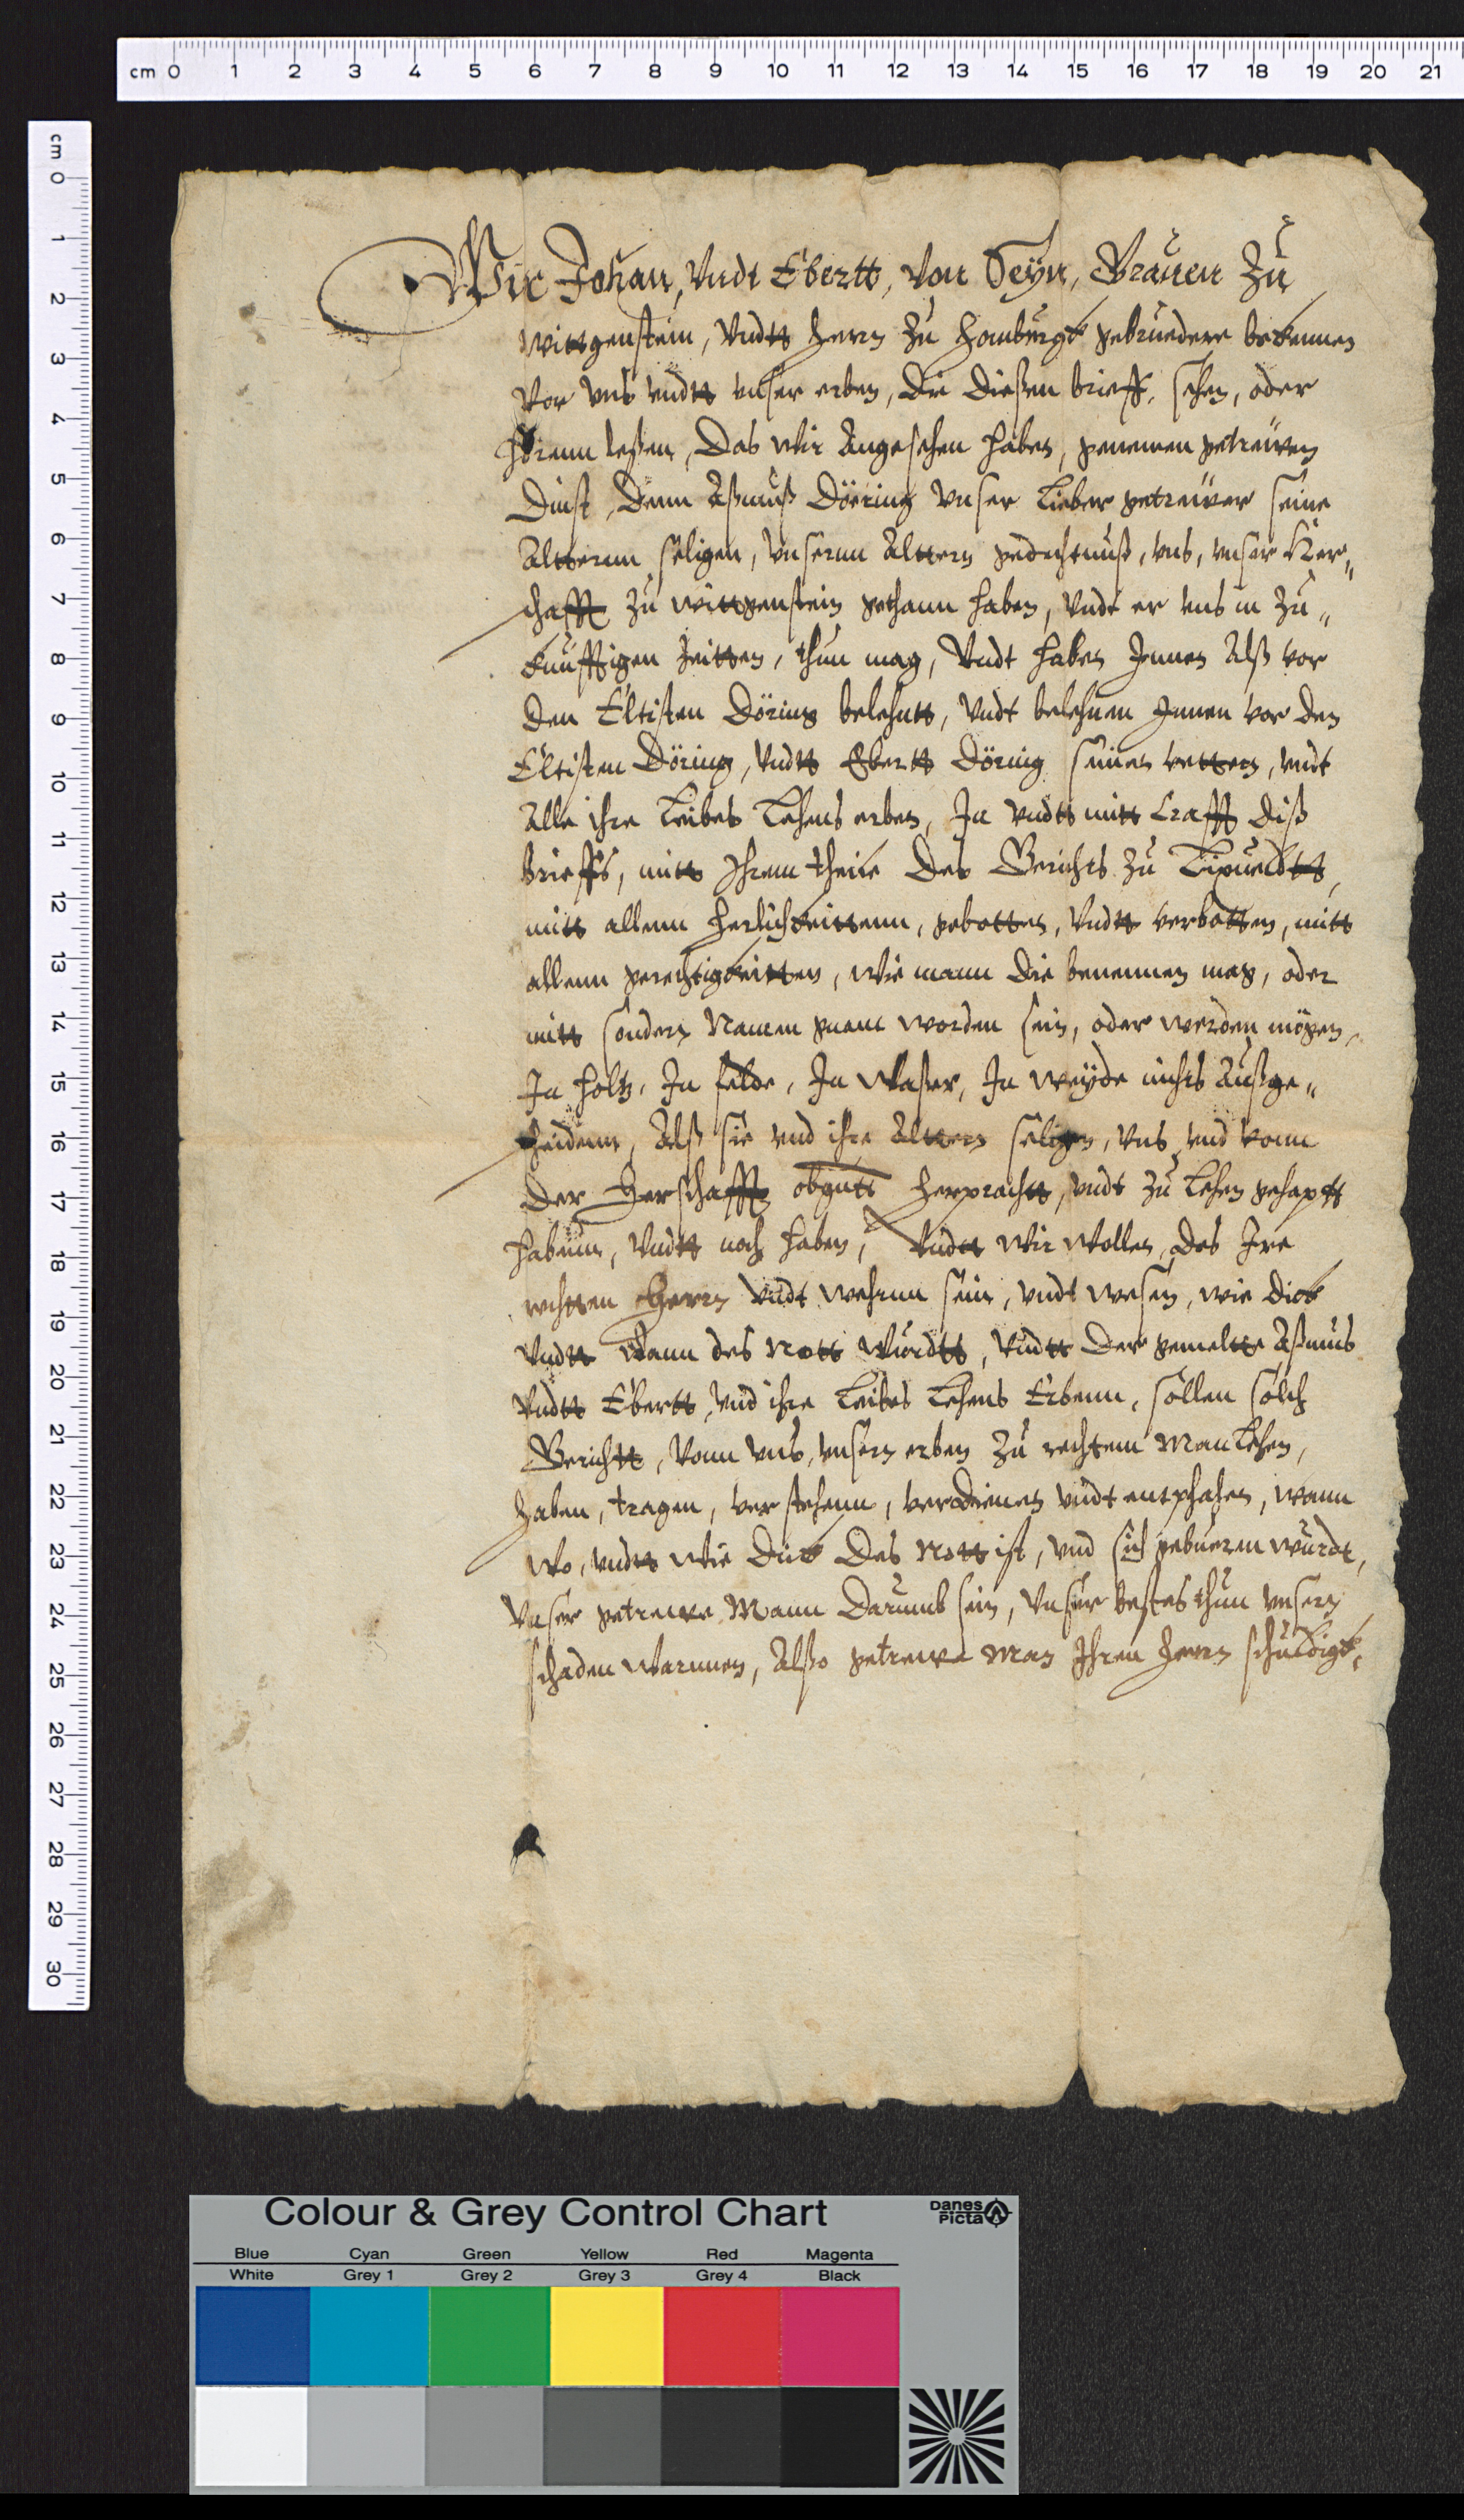 cm 0 1 2 3 4 5 6 7 8 9 10 11 12 13 14 15 16 17 18 19 20 21
cm 0 1 2 3 4 5 6 7 8 9 10 11 12 13 14 15 16 17 18 19 20 21 22 23 24 25 26 27 28 29 30
Wir Johan, Vndt Ebertt, Von Seÿn, Grauen Zu
Wittgenstein, Vndtt herrn Zu Homburgk gebruedere bekennen
Vor vns vndtt vnser erben, Die Dießen brieff, sehen, oder
hörenn leßen, Das wir Angesehen haben, genemen getrewen
Dinst, Denn Aßmuß Döering Vnser Lieber getreüwer seine
Altterenn seligen, Vnserenn Alttern gedechtnuß, vns, vnser Her„
schafft Zu Wittgenstein gethann haben, Vndt er vns in Zu„
kunfftigen Zeitten, thun mag, Vndt haben Jnnen Alß vor
Den Eltisten Döring belehntt, Vndt belehnen Jnnen vor den
Eltisten Döring, Vndtt Ebertt Döring seinen vettern, vndt
Alle ihre Leibes Lehens erben, Jn vndtt mitt Crafft diß
brieffs, mitt Jhrem theile Des Gerichts Zu Lixueldtt,
mitt allenn herlichkeittenn, gebotten, Vndtt verbotten, mitt
allenn gerechtigkeitten, wie mann die benennen mag, oder
mitt sondern Namen genant worden sein, oder werden mögen,
Jn holtz, Jn felde, Jn Waßer, Jn weÿde nichts Außge„
scheidenn, Alß sie vnd ihre Altteren seligen, Vns vnd vonn
Der Herschafft obgntt herprachtt, vndt Zu Lehen gehaptt
habenn, Vndtt noch haben, Vndtt Wir Wollen, Des Jre
rechtten Herrn Vndt wehrenn sein, vndt wesen, wie dick
Vndtt Wann des Nott Würdtt, Vndtt Der gemeltte Aßmus
Vndtt Ebertt, Vnd ihre Leibes Lehens Erbenn, sollen solch
Gerichtt, Vonn Vns, vnsern erben Zu rechtem Manlehen,
haben, tragen, verstehenn, verdienen Vndt entphahen, wann
Wo, vndtt Wie Dick Des Nott ist, vnd sich gebueren würdt,
Vnser getrewe Mann Darumb sein, Vnser bestes thun vnsern
schaden Warnnen, Alßo getrewe Man Jhren herrn schuldigk,
Colour & Grey Control Chart
Danes Picta
Blue Cyan Green Yellow Red Magenta
White Grey 1 Grey 2 Grey 3 Grey 4 Black